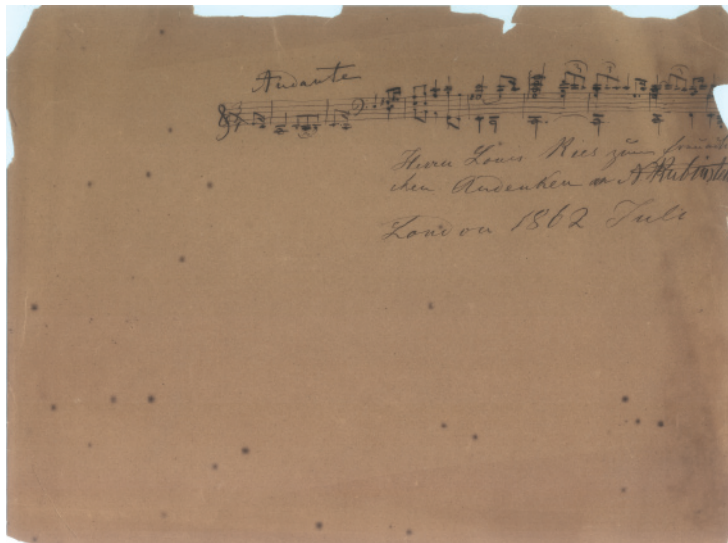 Andante
Herrn Louis Ries zum freundli
chen Andenken v A Rubinstei
London 1862 Juli